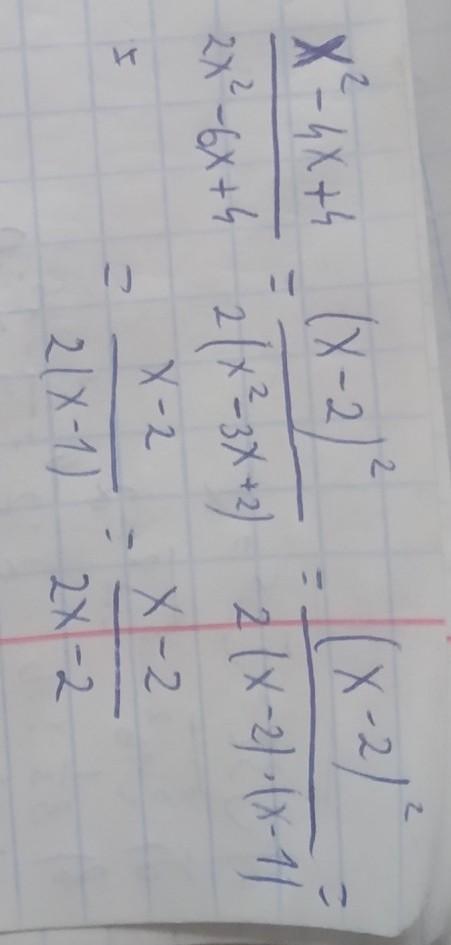 x² - 4x + 4 / 2x² - 6x + 4 = (x - 2)² / 2(x² - 3x + 2) = (x - 2)² / 2(x - 2)·(x - 1) =
= x - 2 / 2(x - 1) = x - 2 / 2x - 2